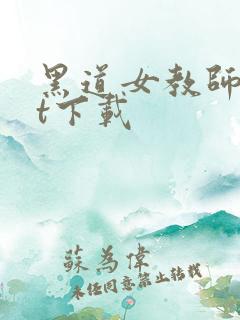 黑道女教師
t下載
蘇為偉
未經同意禁止轉載